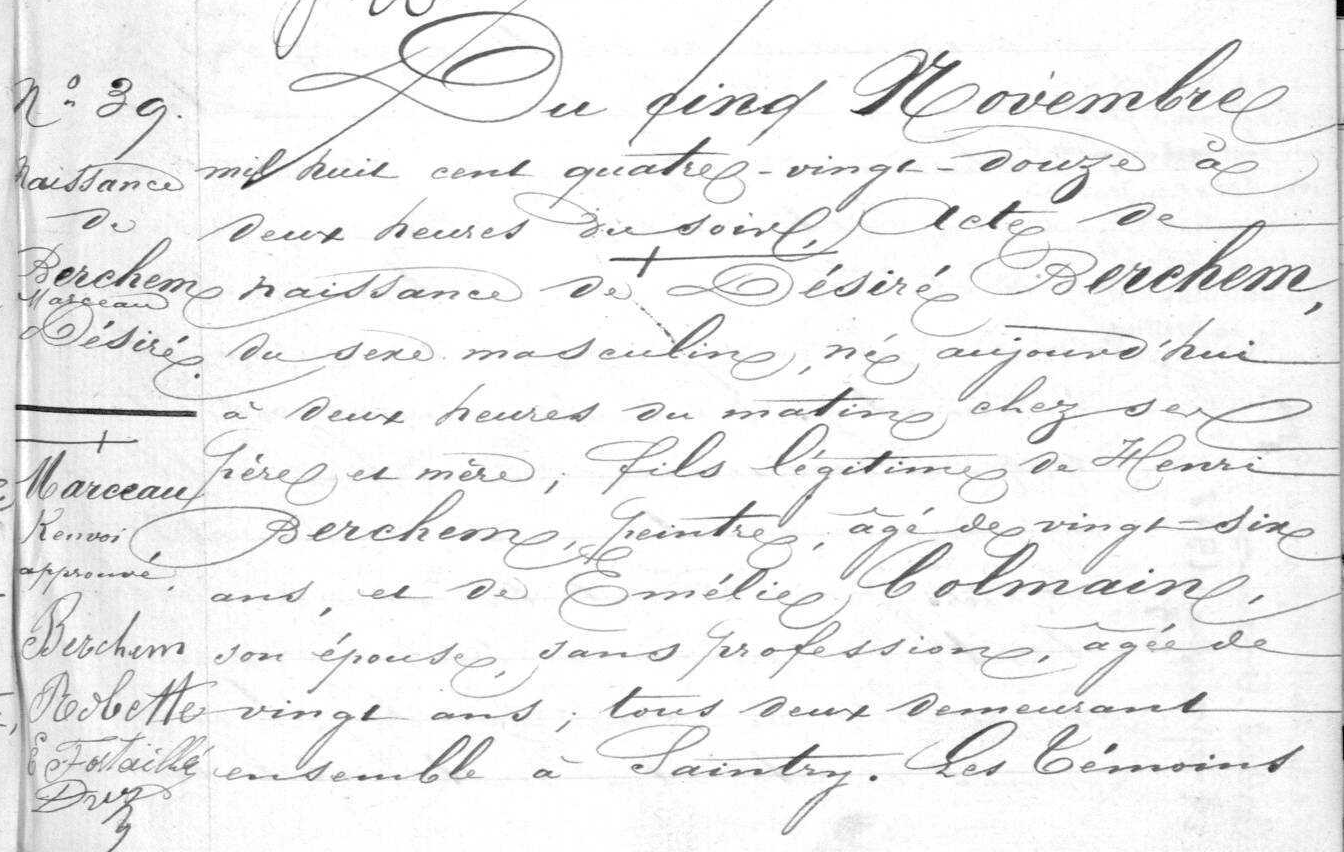 N° 39.
Naissance
de
Berchem
Marceau
Désiré.
Marceau
Renvoi
approuvé.
Berchem
Robette
E Fortaillé
Du cinq Novembre
mil huit cent quatre-vingt-douze à
deux heures du soir, Acte de
naissance de Désiré Berchem,
du sexe masculin, né aujourd'hui
à deux heures du matin chez ses
père et mère, fils légitime de Henri
Berchem, peintre, âgé de vingt-six
ans, et de Emélie Colmain,
son épouse, sans profession, âgée de
vingt ans ; tous deux demeurant
ensemble à Saintry. Les Témoins